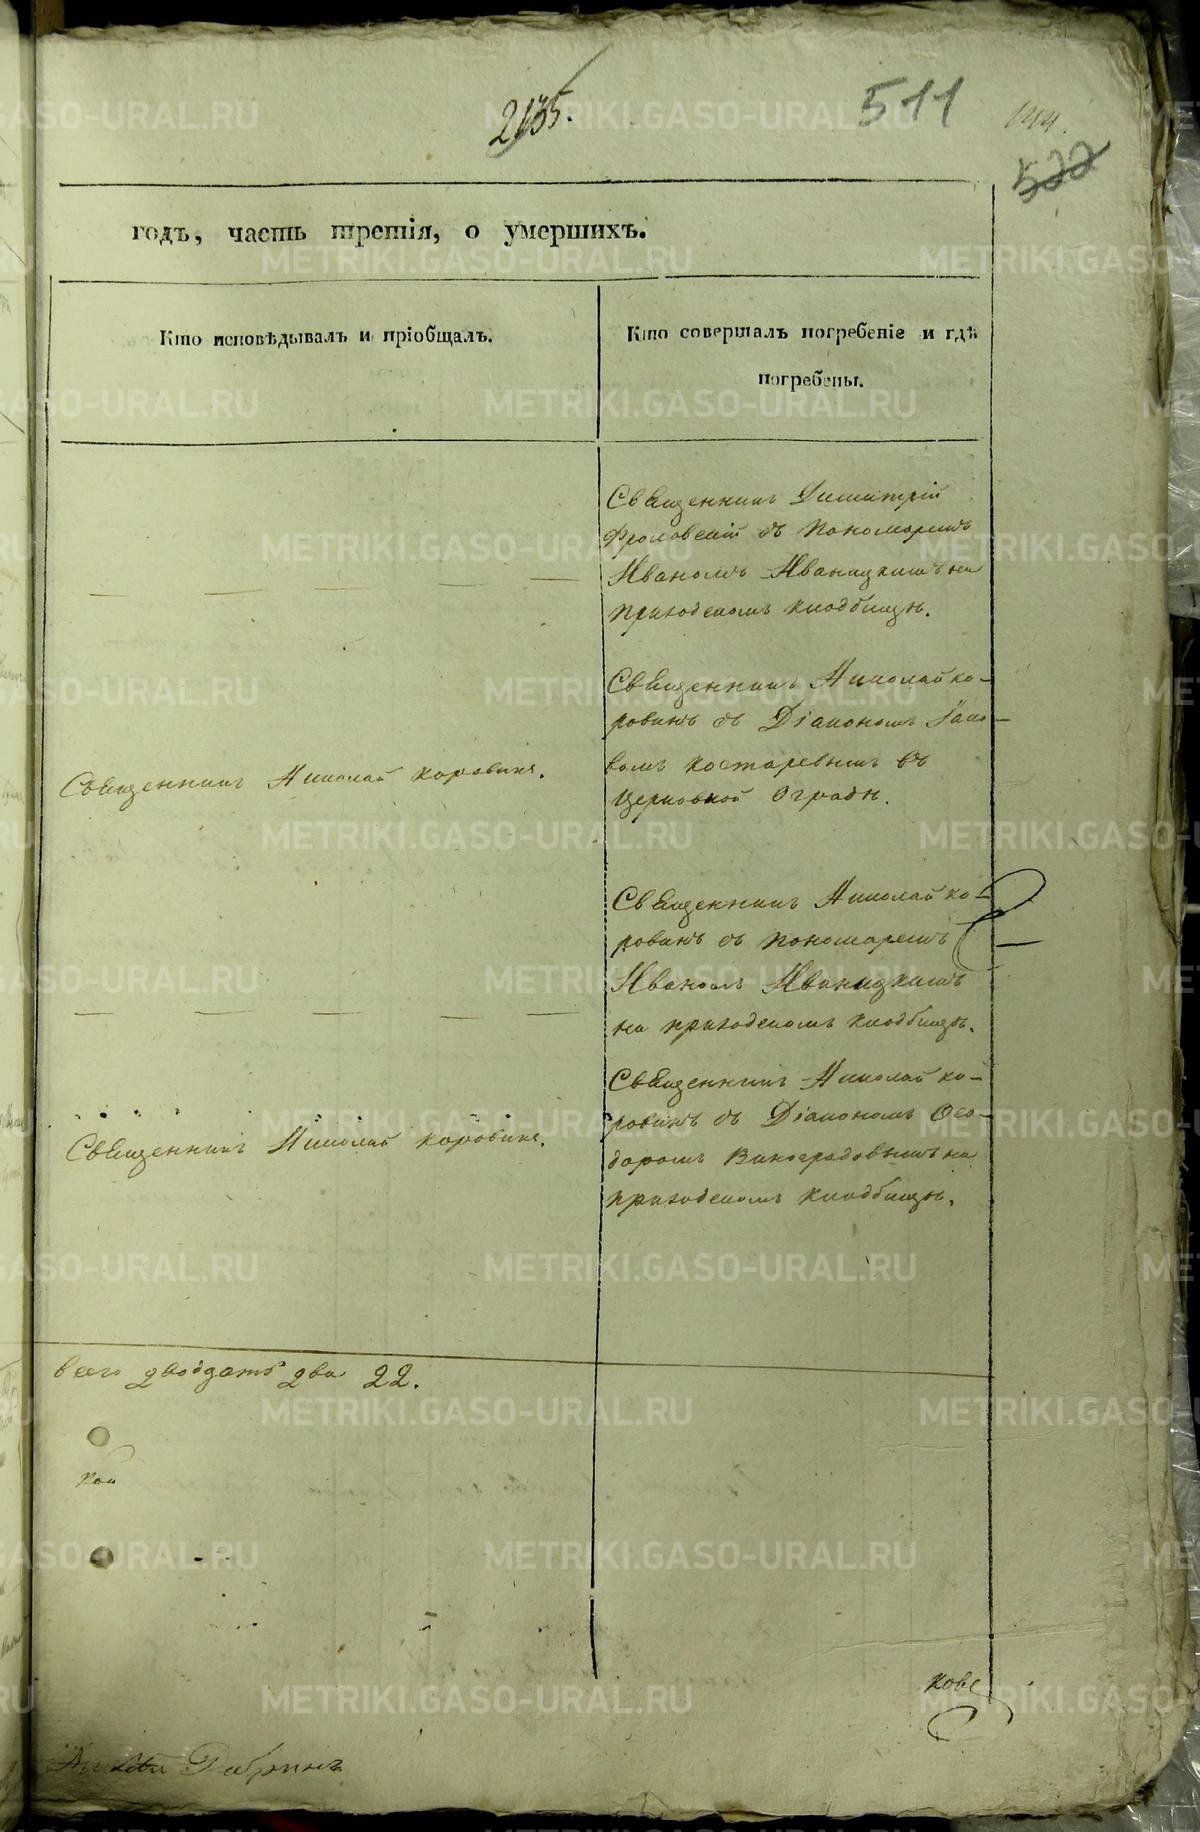 2135.
511
144.
522
годъ, часть третія, о умершихъ.
Кто исповѣдывалъ и пріобщалъ.
Кто совершалъ погребеніе и гдѣ
погребены.
Священникъ Димитрій
Фроловскій съ Пономаремъ
Иваномъ Иваницкимъ на
приходскомъ кладбищѣ.
Священникъ Николай Коровинъ.
Священникъ Николай Ко-
ровинъ съ Діакономъ Яко-
вомъ Костаревымъ въ
Церковной Оградѣ.
Священникъ Николай Ко-
ровинъ съ Пономаремъ
Иваномъ Иваницкимъ
на приходскомъ кладбищѣ.
Священникъ Николай Коровинъ.
Священникъ Николай Ко-
ровинъ съ Діакономъ Ѳео-
доромъ Виноградовымъ на
приходскомъ кладбищѣ.
всего двадцать два 22.
METRIKI.GASO-URAL.RU